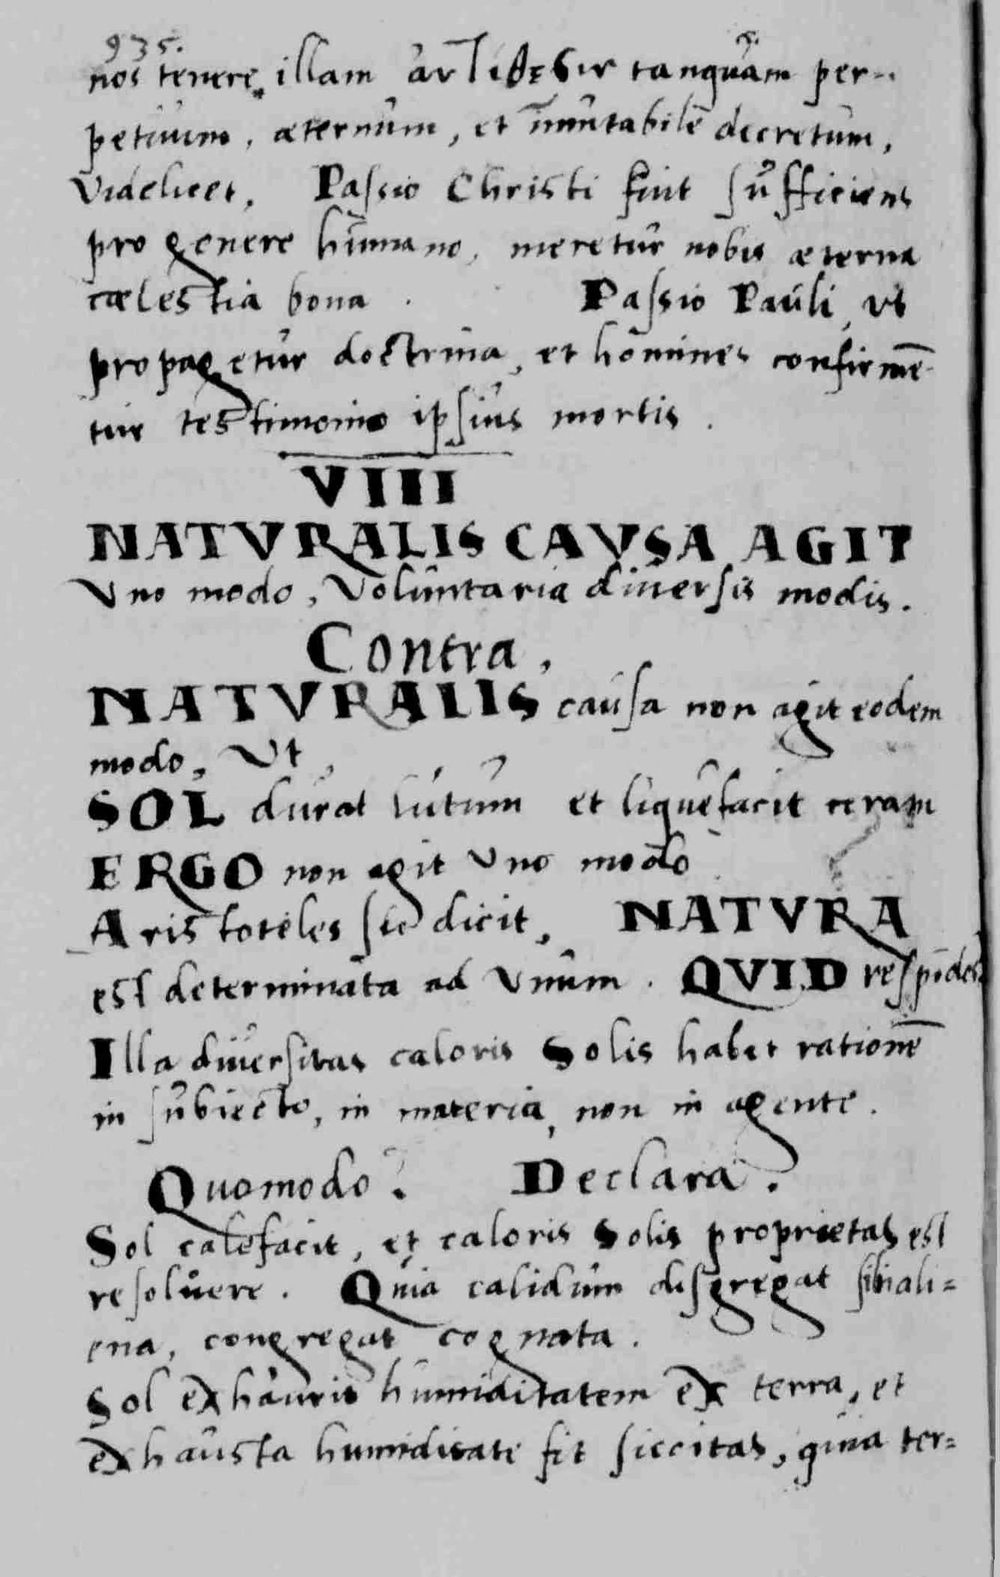 935.
nos tenere, illam
tanquam per-
petuum, æternum, et immutabile decretum,
Videlicet, Passio Christi fuit sufficiens
pro genere humano, meretur nobis æterna
cælestia bona. Passio Pauli, ut
propagetur doctrina, et homines confirmē-
tur testimonio ipsius mortis.
VIII
NATVRALIS CAVSA AGIT
Vno modo, Voluntaria diuersis modis.
Contra,
NATVRALIS causa non agit eodem
modo, Vt,
SOL durat lutum et liquefacit ceram
ERGO non agit Vno modo
Aristoteles sic dicit, NATVRA
est determinata ad Vnum. QVID respōdes
Illa diuersitas caloris Solis habet rationē
in subiecto, in materia, non in agente.
Quomodo? Declara.
Sol calefacit, et caloris Solis proprietas est
resoluere. Quia calidum disgregat sibi ali=
ena, congregat cognata.
Sol exhaurit humiditatem ex terra, et
exhausta humiditate fit siccitas, quia ter=